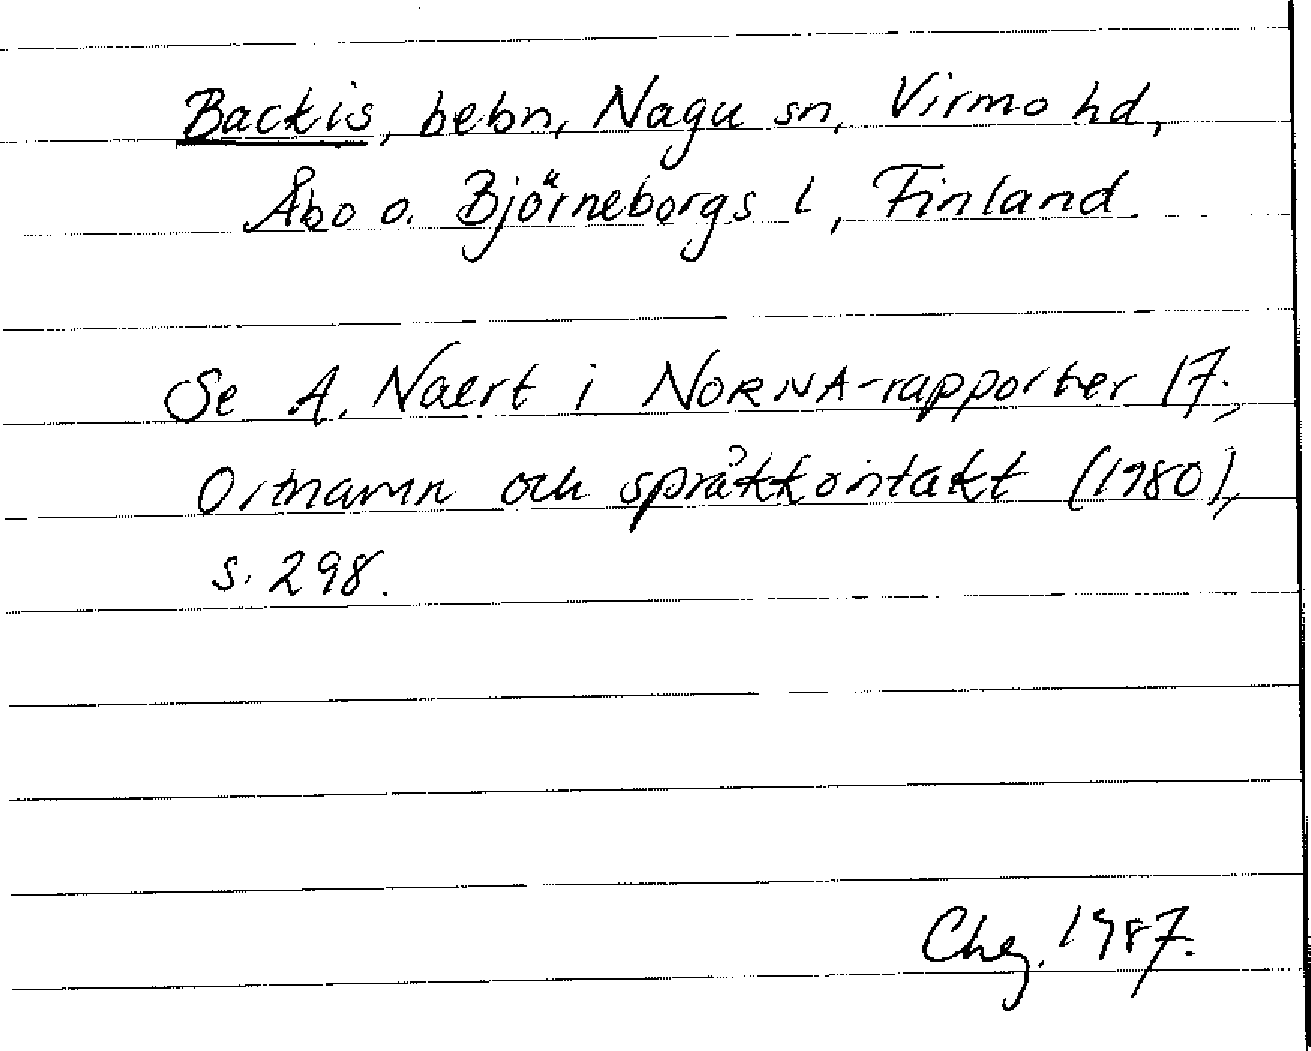 Backis, bebn, Nagu sn, Virmo hd,
Åbo o. Björneborgs l, Finland.
Se A. Naert i NORNA-rapporter 17,
Ortnamn och språkkontakt (1980),
s. 298.
Chg. 1987.